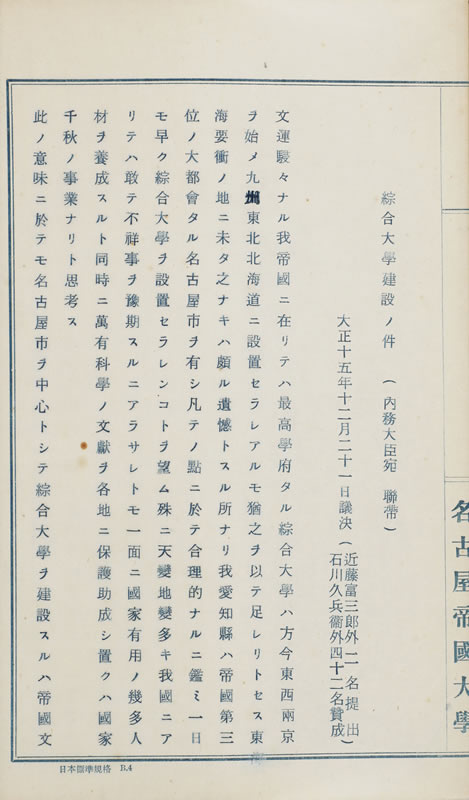 綜合大學建設ノ件 (內務大臣宛 聯帶)
大正十五年十二月二十一日議決(近藤富三郎外二名提出
石川久兵衞外四十二名賛成)
文運駸々ナル我帝國ニ在リテハ最高學府タル綜合大學ハ方今東西兩京
ヲ始メ九州東北北海道ニ設置セラレアルモ猶之ヲ以テ足レリトセス東海
海要衝ノ地ニ未タ之ナキハ頗ル遺憾トスル所ナリ我愛知縣ハ帝國第三
位ノ大都會タル名古屋市ヲ有シ凡テノ點ニ於テ合理的ナルニ鑑ミ一日
モ早ク綜合大學ヲ設置セラレンコトヲ望ム殊ニ天變地變多キ我國ニア
リテハ敢テ不祥事ヲ豫期スルニアラサレトモ一面ニ國家有用ノ幾多人
材ヲ養成スルト同時ニ萬有科學ノ文獻ヲ各地ニ保護助成シ置クハ國家
千秋ノ事業ナリト思考ス
此ノ意味ニ於テモ名古屋市ヲ中心トシテ綜合大學ヲ建設スルハ帝國文
名古屋帝國大學
日本標準規格 B.4